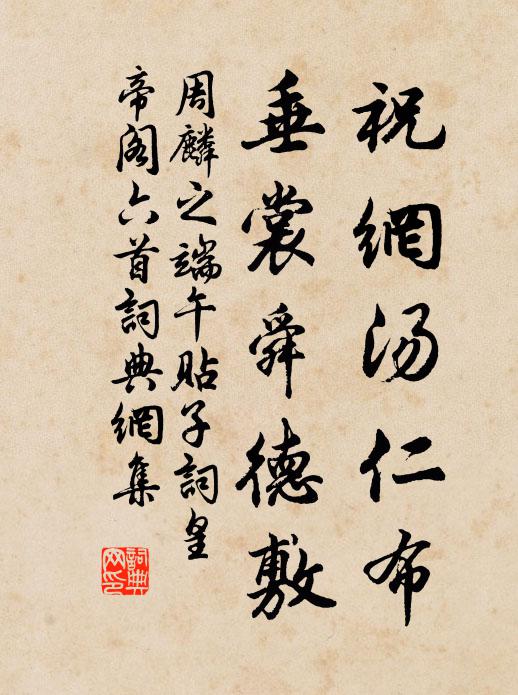 祝網湯仁布
垂裳舜德敷
周麟之端午貼子詞皇
帝閣六首詞典網集
詞典网印